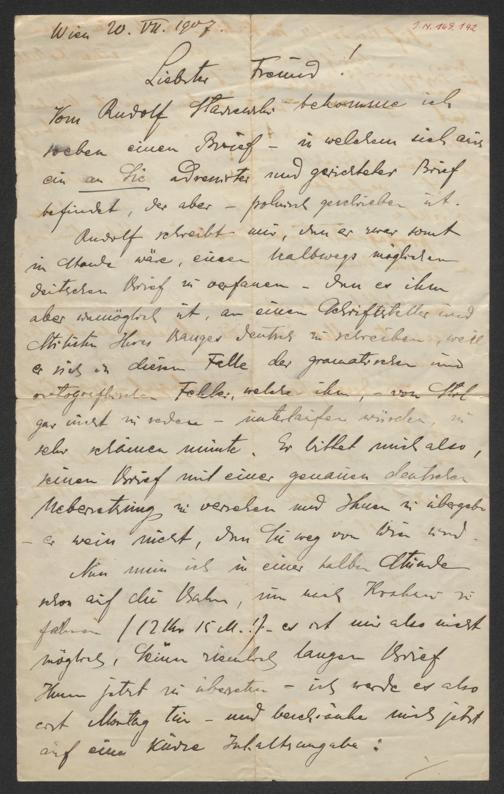 Wien 20. VII. 1907.
I.N. 169.192
Liebster Freund!
Vom Rudolf Starzewski bekomme ich
soeben einen Brief – in welchem sich auch
ein an Sie adressirter und gerichteter Brief
befindet, der aber – polnisch geschrieben ist.
Rudolf schreibt mir, dass er zwar sonst
im Stande wäre, einen halbwegs möglichen
deutschen Brief zu verfassen – dass es ihm
aber unmöglich ist, an einen Schriftsteller und
Stilisten Ihres Ranges deutsch zu schreiben, weil
er sich in diesem Falle der gramatischen und
ortografischen Fehler, welche ihm, – von Styl
gar nicht zu reden – unterlaufen würden, zu
sehr schämen müsste. Er bittet mich also,
seinen Brief mit einer genauen deutschen
Uebersetzung zu versehen und Ihnen zu übergeben
– er weiss nicht, dass Sie weg von Wien sind.
Nun muss ich in einer halben Stunde
schon auf die Bahn, um nach Krakau zu
fahren (12 Uhr 15 M..!) – es ist mir also nicht
möglich, seinen ziemlich langen Brief
Ihnen jetzt zu übersetzen – ich werde es also
erst Montag tun – und beschränke mich jetzt
auf eine kurze Inhaltsangabe: